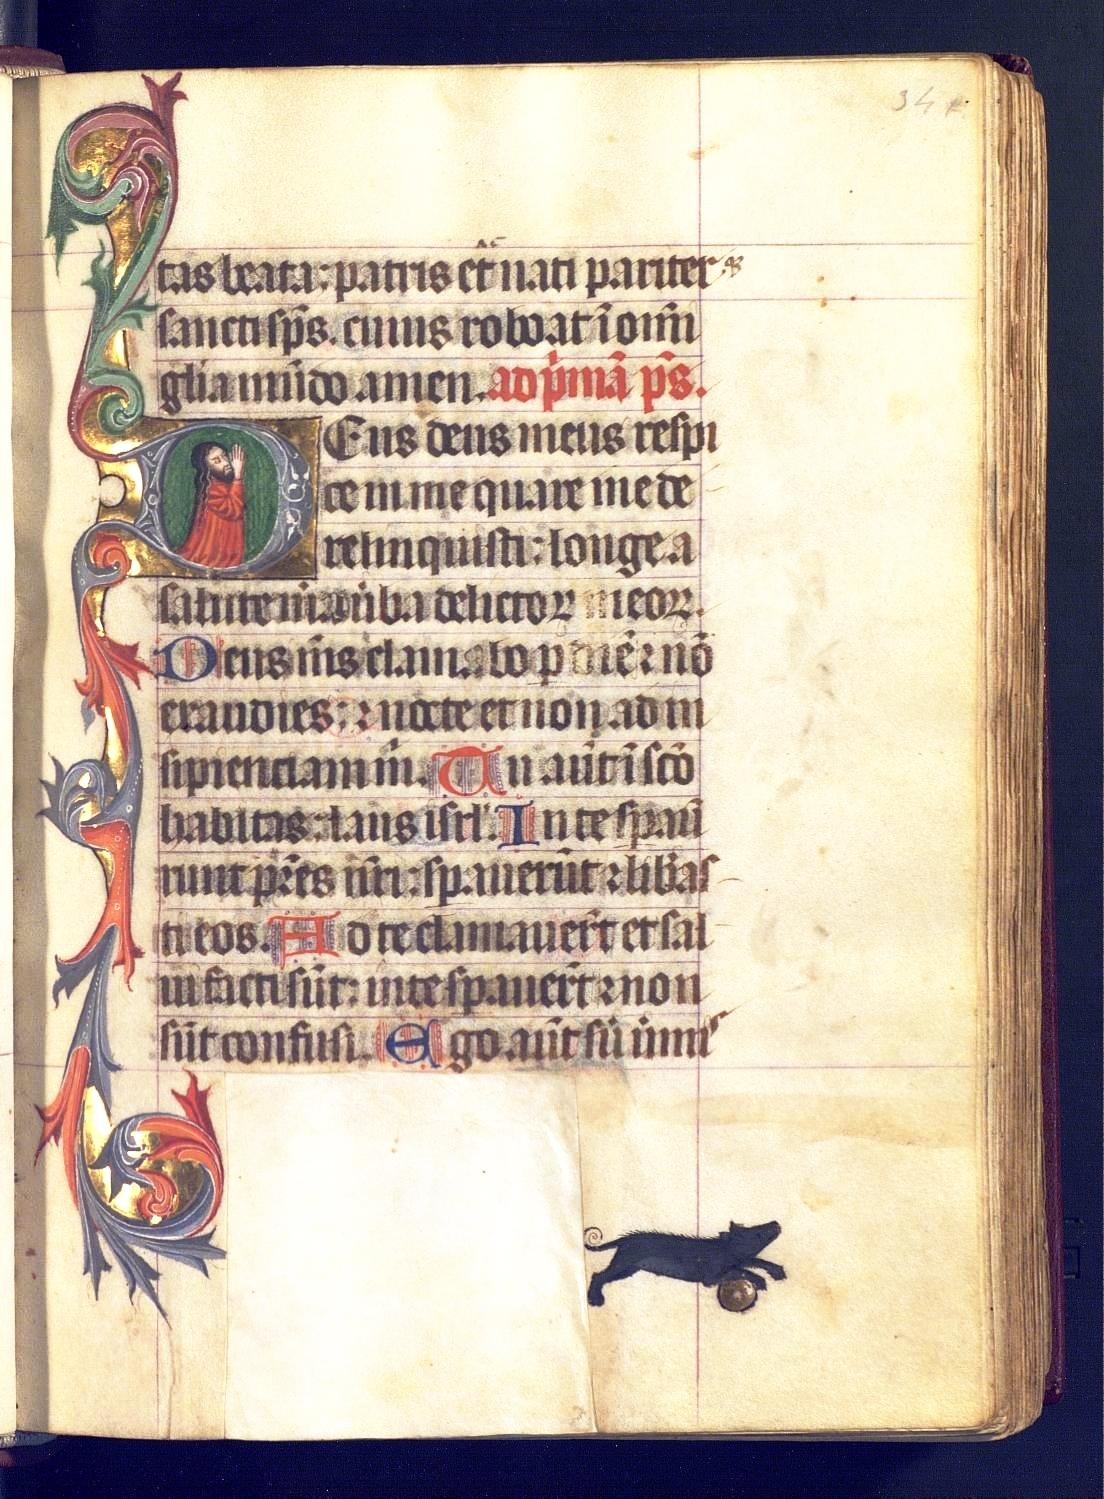 34 r
tas beata: patris et nati pariter &
sancti sp̄s. cuius roborat ī om̄i
gl̄ia mūdo amen. ad p̄mā p̄s.
Deus deus meus respi
ce in me quare me de
relinquisti: longe a
salute m̄a v̄ba delictoꝝ meoꝝ.
Deus m̄s clamabo p diē ⁊ nō
exaudies: ⁊ nocte et non ad in
sipienciam m̄. Tu aūt ī scō
habitas: laus isrl'. In te spaū
runt pr̄es n̄ri: spauerūt ⁊ lib̄as
ti eos. Ad te clamauer̄t et sal
ui facti sūt: in te spauer̄t ⁊ non
sūt confusi. Ego aūt sū v̄mis